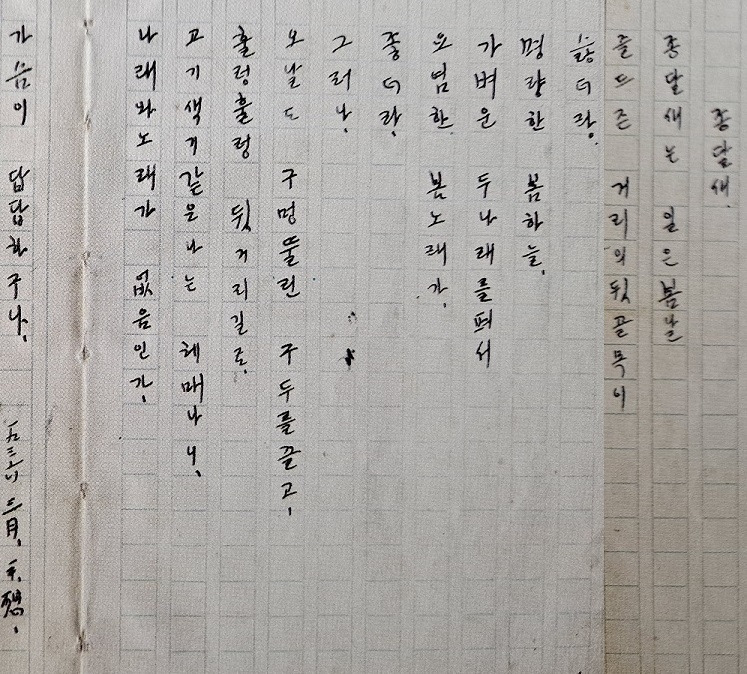 종달새.
종달새는 일은봄날
즐드즌 거리의뒷골목이
슳더라.
명랑한 봄하늘,
가벼운 두나래를펴서
요염한 봄노래가,
좋더라,
그러나,
오날도 구멍뚤린 구두를끌고,
훌렁훌렁 뒷거리길로,
고기색기같은나는 헤매나니,
나래와노래가 없음인가,
가슴이 답답하구나,
一九三六 三月, 平, 想,